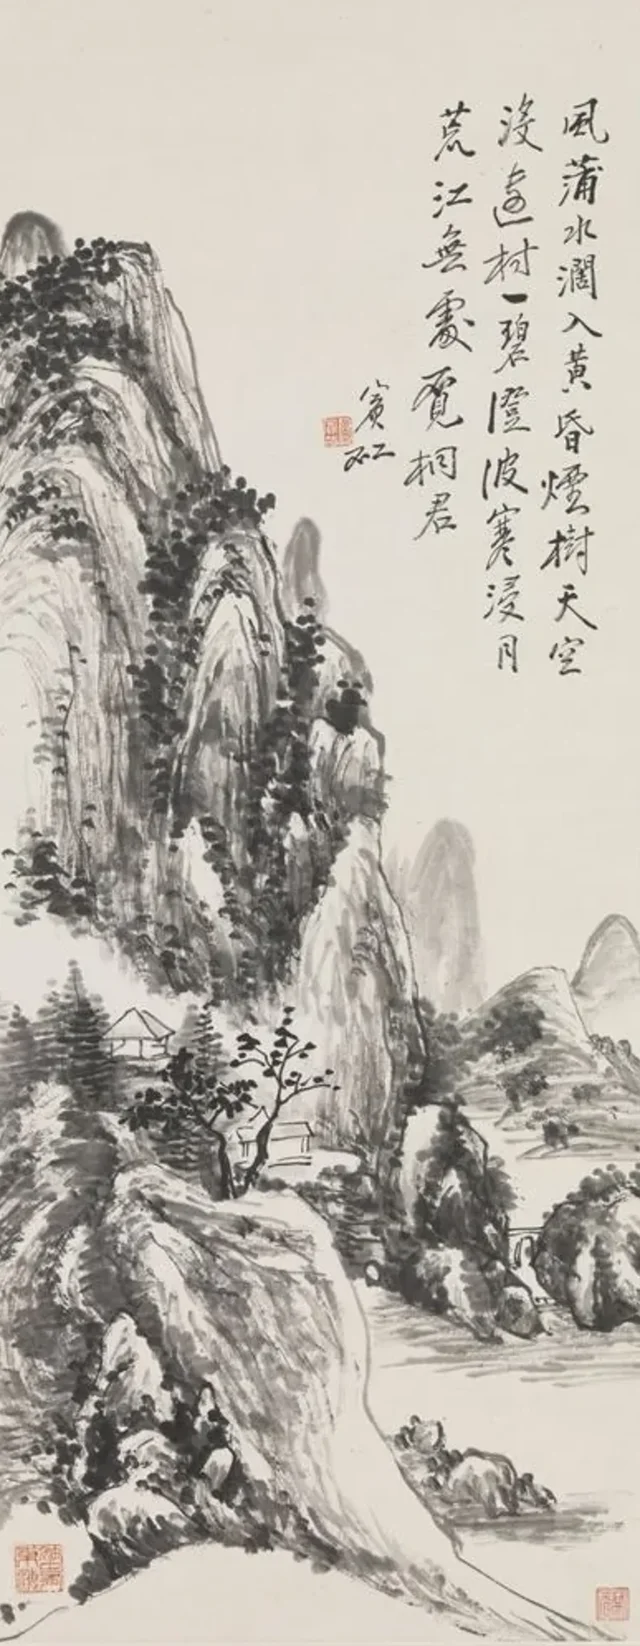 風蒲水濶入黃昏煙樹天空
沒遠村一碧澄波寒浸月
荒江無處覓桐君
賓虹